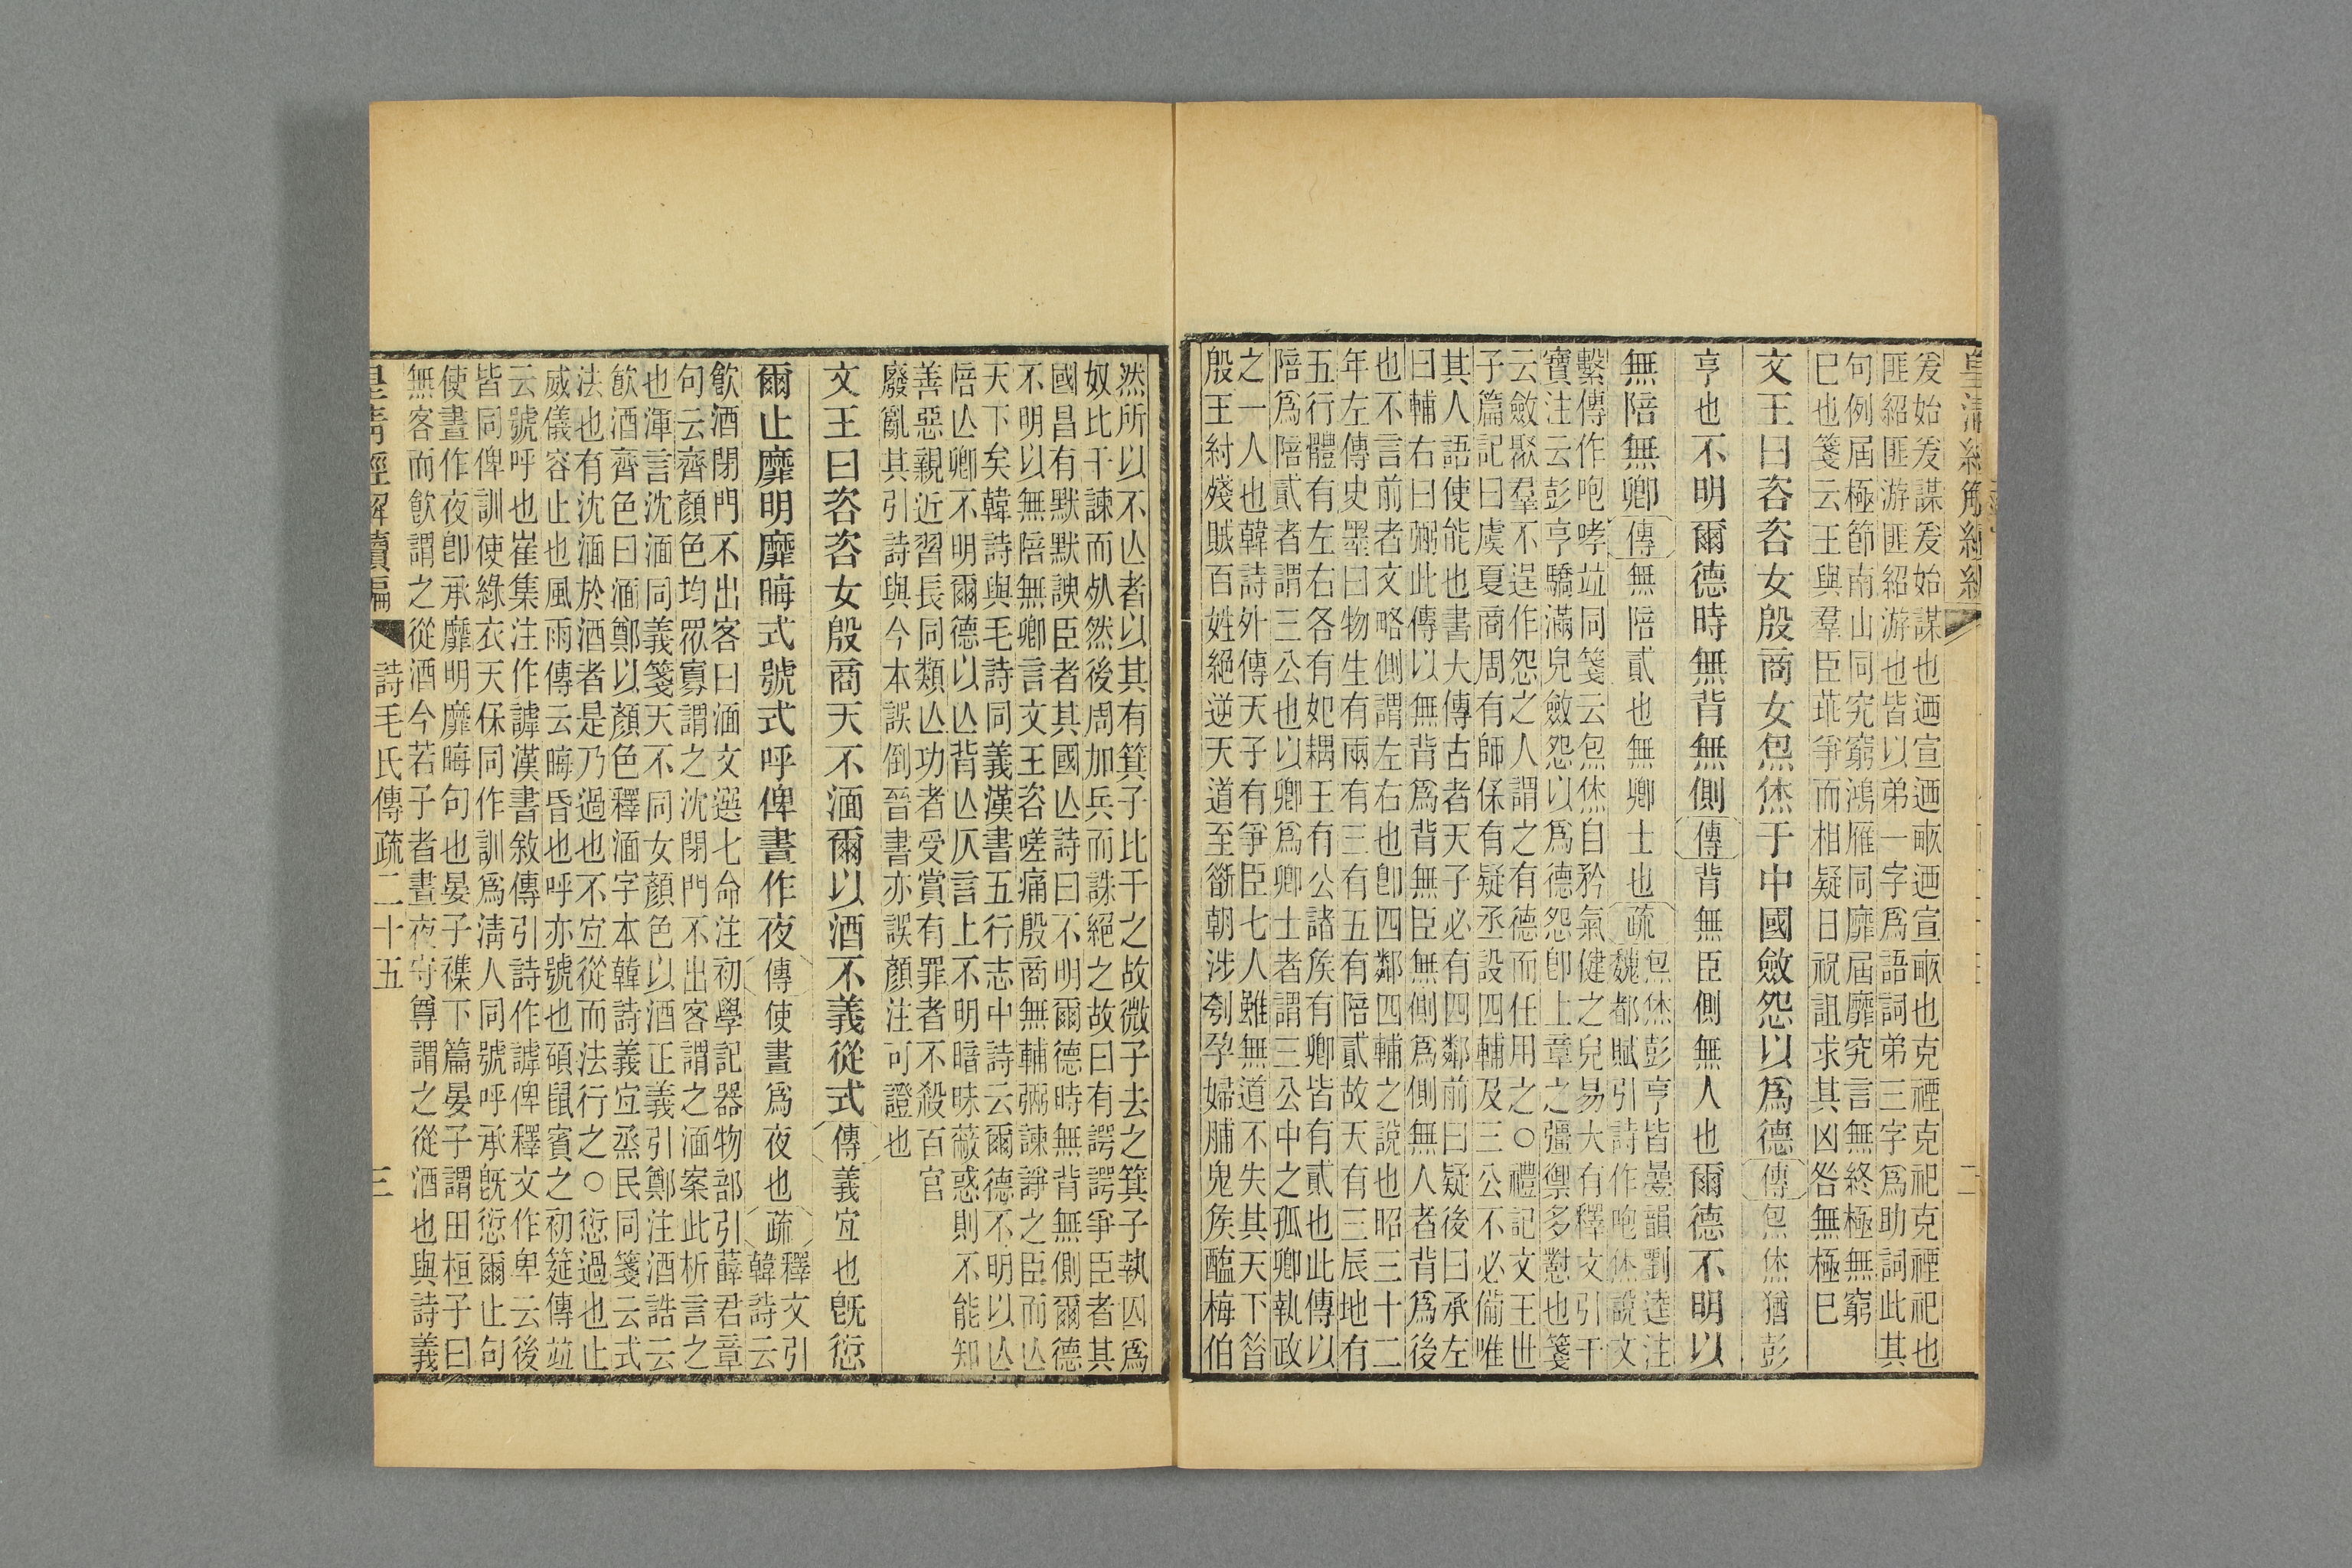 皇清經解續編
二
爰始爰謀爰始謀也迺宣迺畝迺宣畝也克禋克祀克禋祀也
匪紹匪游匪紹游也皆以弟一字爲語詞弟三字爲助詞此其
句例屆極節南山同究窮鴻雁同靡屆靡究言無終極無窮
巳也箋云王與羣臣乖爭而相疑日祝詛求其凶咎無極巳
文王曰咨咨女殷商女炰烋于中國斂怨以爲德傳炰烋猶彭
亨也不明爾德時無背無側傳背無臣側無人也爾德不明以
無陪無卿傳無陪貳也無卿士也疏
炰烋彭亨皆曡韻劉逵注
魏都賦引詩作咆烋說文
繫傳作咆哮竝同箋云炰烋自矜氣健之皃易大有釋文引干
寶注云彭亨驕滿皃斂怨以爲德怨卽上章之彊禦多懟也箋
云斂聚羣不逞作怨之人謂之有德而任用之○禮記文王世
子篇記曰虞夏商周有師保有疑丞設四輔及三公不必備唯
其人語使能也書大傳古者天子必有四鄰前曰疑後曰承左
曰輔右曰弼此傳以無背爲背無臣無側爲側無人者背爲後
也不言前者文略側謂左右也卽四鄰四輔之說也昭三十二
年左傳史墨曰物生有兩有三有五有陪貳故天有三辰地有
五行體有左右各有妃耦王有公諸矦有卿皆有貳也此傳以
陪爲陪貳者謂三公也以卿爲卿士者謂三公中之孤卿執政
之一人也韓詩外傳天子有爭臣七人雖無道不失其天下昔
殷王紂殘賊百姓絕逆天道至斮朝涉刳孕婦脯鬼矦醢梅伯
然所以不亾者以其有箕子比干之故微子去之箕子執囚爲
奴比干諫而死然後周加兵而誅絕之故曰有諤諤爭臣者其
國昌有默默諛臣者其國亾詩曰不明爾德時無背無側爾德
不明以無陪無卿言文王咨嗟痛殷商無輔弼諫諍之臣而亾
天下矣韓詩與毛詩同義漢書五行志中詩云爾德不明以亾
陪亾卿不明爾德以亾背亾仄言上不明暗昧蔽惑則不能知
善惡親近習長同類亾功者受賞有罪者不殺百官
廢亂其引詩與今本誤倒晉書亦誤顏注可證也
文王曰咨咨女殷商天不湎爾以酒不義從式傳義宜也旣愆
爾止靡明靡晦式號式呼俾晝作夜傳使晝爲夜也疏
釋文引
韓詩云
飮酒閉門不出客曰湎文選七命注初學記器物部引薛君章
句云齊顏色均眾寡謂之沈閉門不出客謂之湎案此析言之
也渾言沈湎同義箋天不同女顏色以酒正義引鄭注酒誥云
飮酒齊色曰湎鄭以顏色釋湎字本韓詩義宜烝民同箋云式
法也有沈湎於酒者是乃過也不宜從而法行之○愆過也止
威儀容止也風雨傳云晦昏也呼亦號也碩鼠賓之初筵傳竝
云號呼也崔集注作謼漢書敘傳引詩作謼俾釋文作卑云後
皆同俾訓使綠衣天保同作訓爲淸人同號呼承旣愆爾止句
使晝作夜卽承靡明靡晦句也晏子襍下篇晏子謂田桓子曰
無客而飮謂之從酒今若子者晝夜守尊謂之從酒也與詩義
皇淸經解續編
詩毛氏傳疏二十五
三